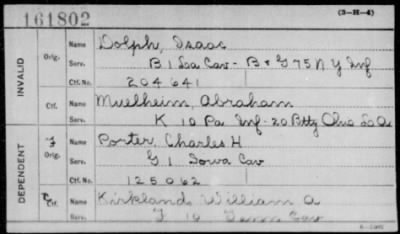 161802
(3-H-4)
INVALID
Orig.
Name Dolph, Isaac
Serv. B 1 La Cav - B & G 75 N Y Inf
Ctf. No. 204641
Ctf.
Name Muelheim, Abraham
Serv. K 10 Pa Inf - 20 Btty Ohio
DEPENDENT
Orig.
Name Porter, Charles H
Serv. G 1 Iowa Cav
Ctf. No. 125062
Ctf.
Name Kirkland William A
Serv. Cav